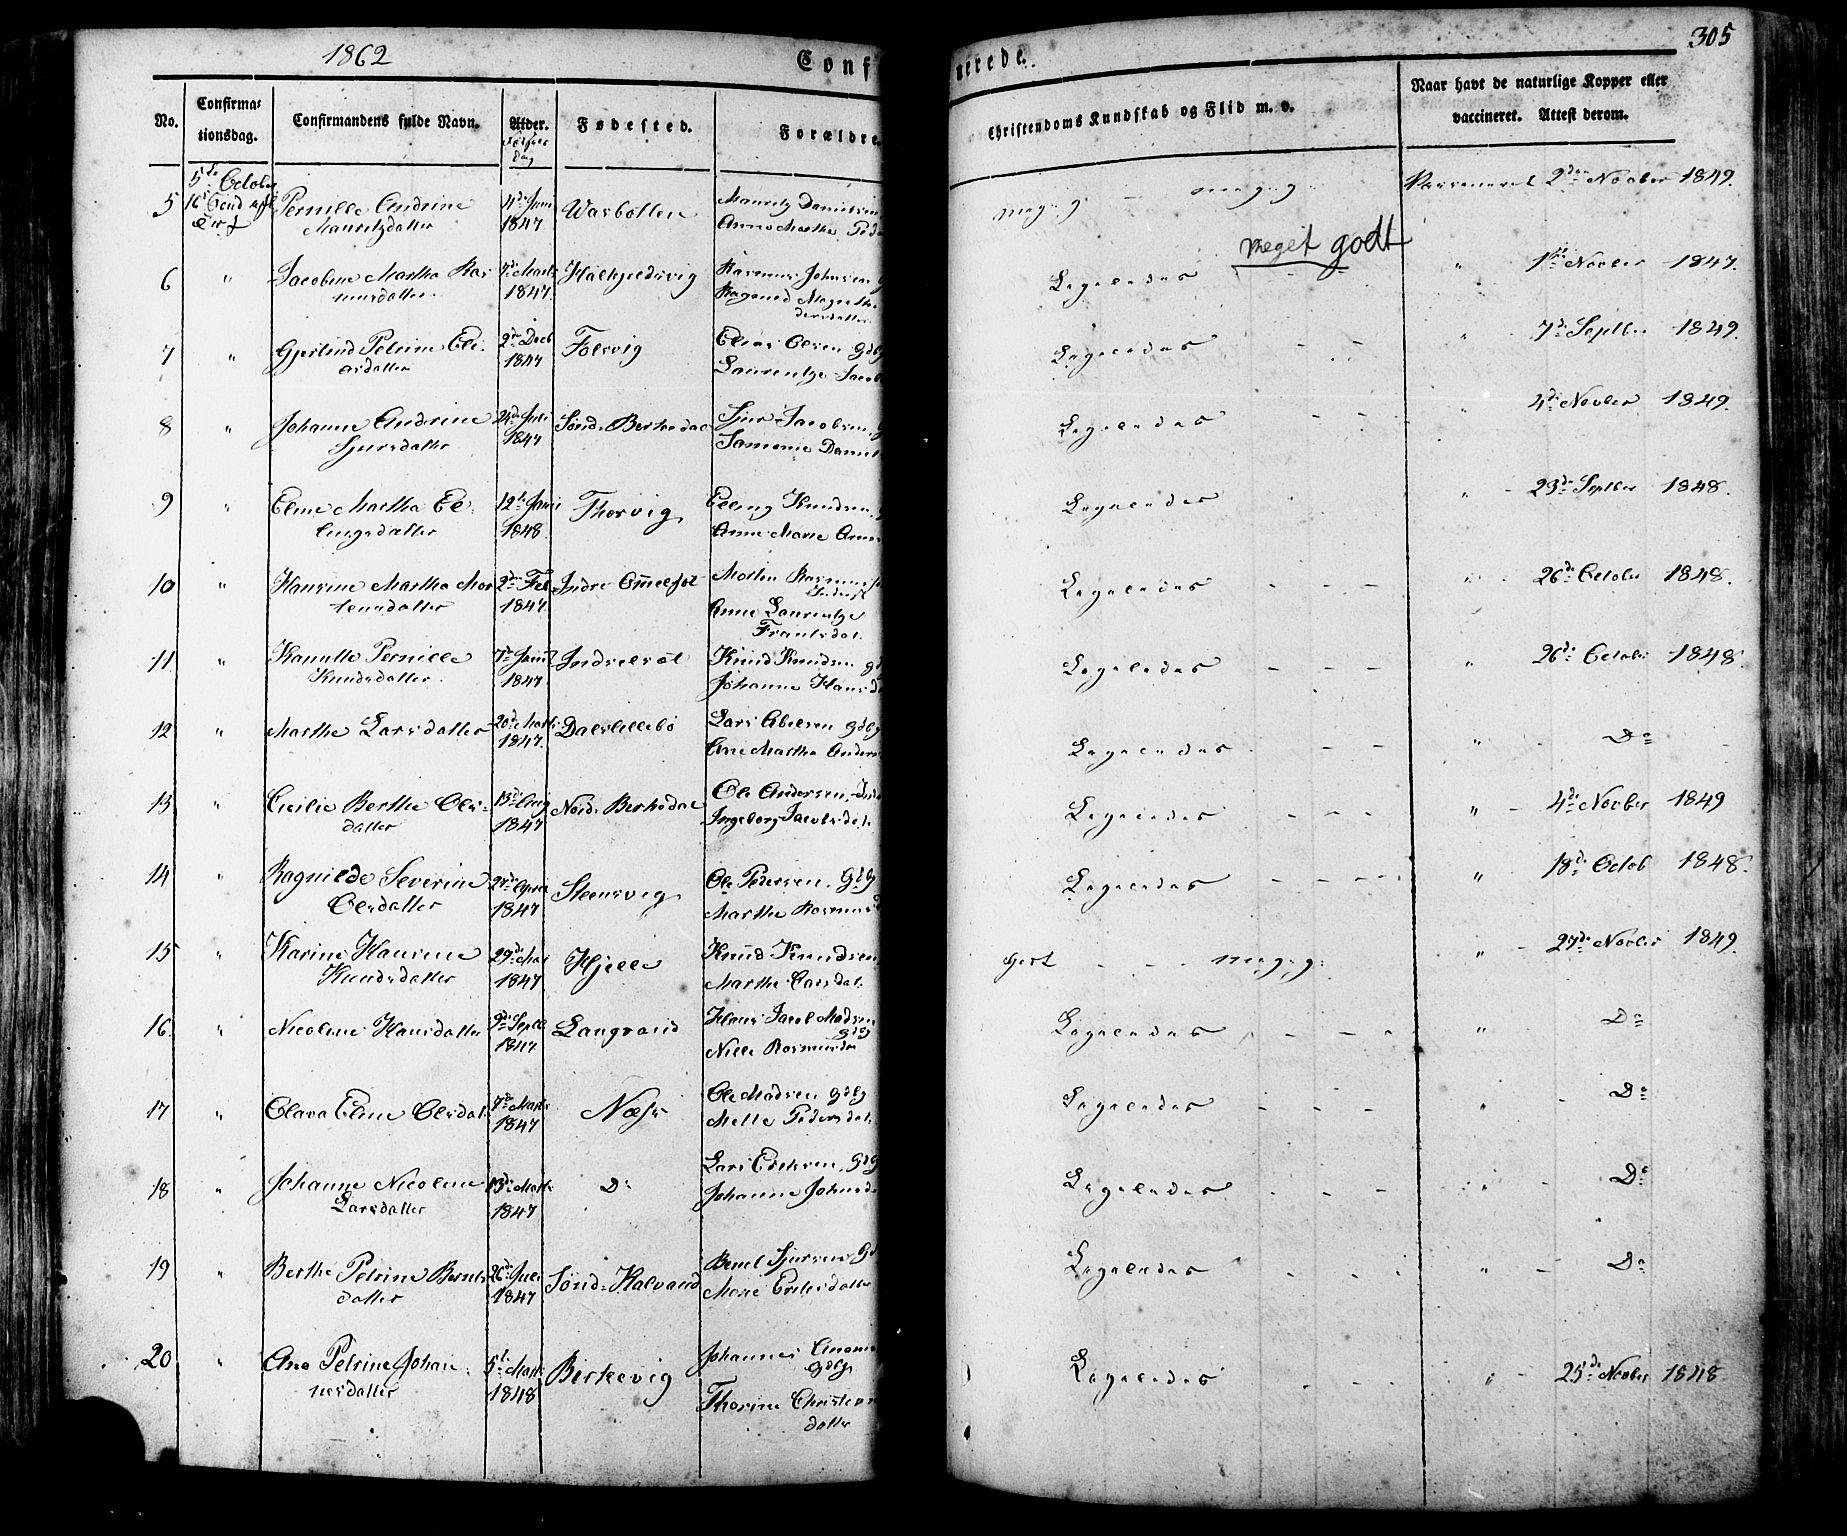 1862
Conf
nerede.
305
No.
Confirma-
tionsdag.
Confirmandens fulde Navn.
Alder.
dag
Fødested.
Forældre
Christendoms Kundskab og Flid m. v.
Naar havt de naturlige Kopper eller
vaccineret. Attest derom.
5te October
5
Pernille Andrine
Mauritzdatter
1847
Warbollen
Mauritz Danielsen
Anne Marthe Peder
meg. g.
meg. g.
2den Novber 1849.
meget godt
6
"
Jacobine Martha Ras
musdatter
7de Marts
1847.
Kalkjedsvig
Rasmus Johnsen
dersdatter
Ligeledes
"
1ste Novber 1847.
7
"
Gjertrud Petrine Eli
asdatter
2den Decb
1847
Folsvig
Elias Olsen Gdbr
Laurentze Jacob
Ligeledes
"
7de Septbr 1849.
8
"
Johanne Andrine
Sjursdatter
24de Juli
1847
Sønd. Berkedal
Sjur Jacobsen
Daniel
Ligeledes
"
4de Novber 1849.
9
"
Eline Martha El
lingsdatter
12te Janu
1848
Thorvig
Elling Knudsen
Anne Marie
Ligeledes
"
23de Septber 1848.
10
"
Hansine Martha Mor
tensdatter
2den Feb
1847.
Indre
Morten Rasmus
Anne Laurentze
Frantsdat.
Ligeledes
"
26de October 1848.
11.
"
Pernille
Knudsdatter
7de
1847
Knud Knudsen
Johanne Hansd
Ligeledes
"
26de Octobr 1848.
12
"
Marthe Larsdatter
20de Marts
1847.
Dalslillebø
Lars Abelsen Gdbr
Ane Martha Anders
Ligeledes
"
Do
13
"
Cecilie Berthe Ols-
datter
13de Aug
1847
Nord. Berkedal
Ole Andersen
Ingeborg Jacobsdat.
Ligeledes
"
4de Novber 1849
14
"
Ragnilde Severine
Olsdatter
27de April
1847
Steensvig
Ole Pedersen. Gdbr
Marthe Rasmusd
Ligeledes
"
18de Octob 1848.
15
"
Karine Hansine
Knudsdatter
29de Mai
1847
Hjelle
Knud Knudsen
Marthe Larsdat.
Godt
meg. g.
"
27de Novber 1849.
16.
"
Nicoline Hansdatter
9de Septb
1847
Langvand
Hans Jacob Madsen
Gdbr
Nille Rasmusda
Ligeledes
"
Do
17
"
Olava Eline Olsdat.
7de Marts
1847
Næss
Ole Madsen Gdbr
Mette Pedersdat.
Ligeledes
"
Do
18
"
Johanne Nicoline
Larsdatter
13de Marts
1847
Do
Lars Gdbr
Johanne Johnsda
Ligeledes
"
Do
19
"
Berthe Petrine Bernts
datter
26de Juli
1847
Sønd. Kalvand
Bernt Sjursen Gd
Marie
Ligeledes
"
Do
20
"
Ane Petrine Johan
nesdatter
5te Marts
1848
Birkevig
Johannes
Gdbr
Thorine Christians
datter
Ligeledes
"
25de Novber 1848